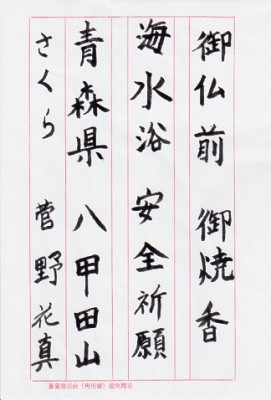 御仏前 御焼香
海水浴 安全祈願
青森県 八甲田山
さくら 菅野花真